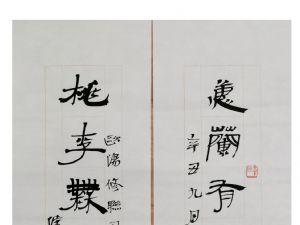 蕙蘭有
辛丑九月
桃李無
歐陽修聯